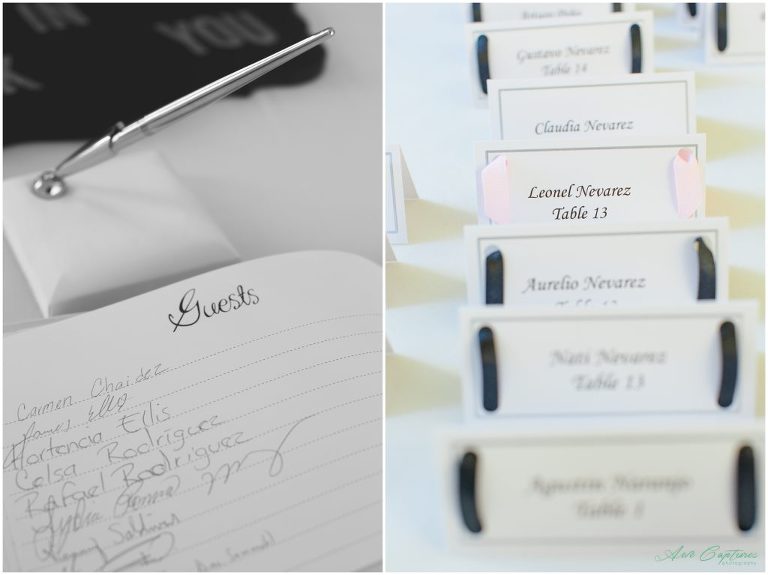 IN
YOU
Guests
Carmen Chaidez
Hortencia Ellis
Celsa Rodriguez
Rafael Rodriguez
Gustavo Nevarez
Table 14
Claudia Nevarez
Leonel Nevarez
Table 13
Aurelio Nevarez
Nati Nevarez
Table 13
Agustin Naranjo
Table 1
Ave Captures
photography